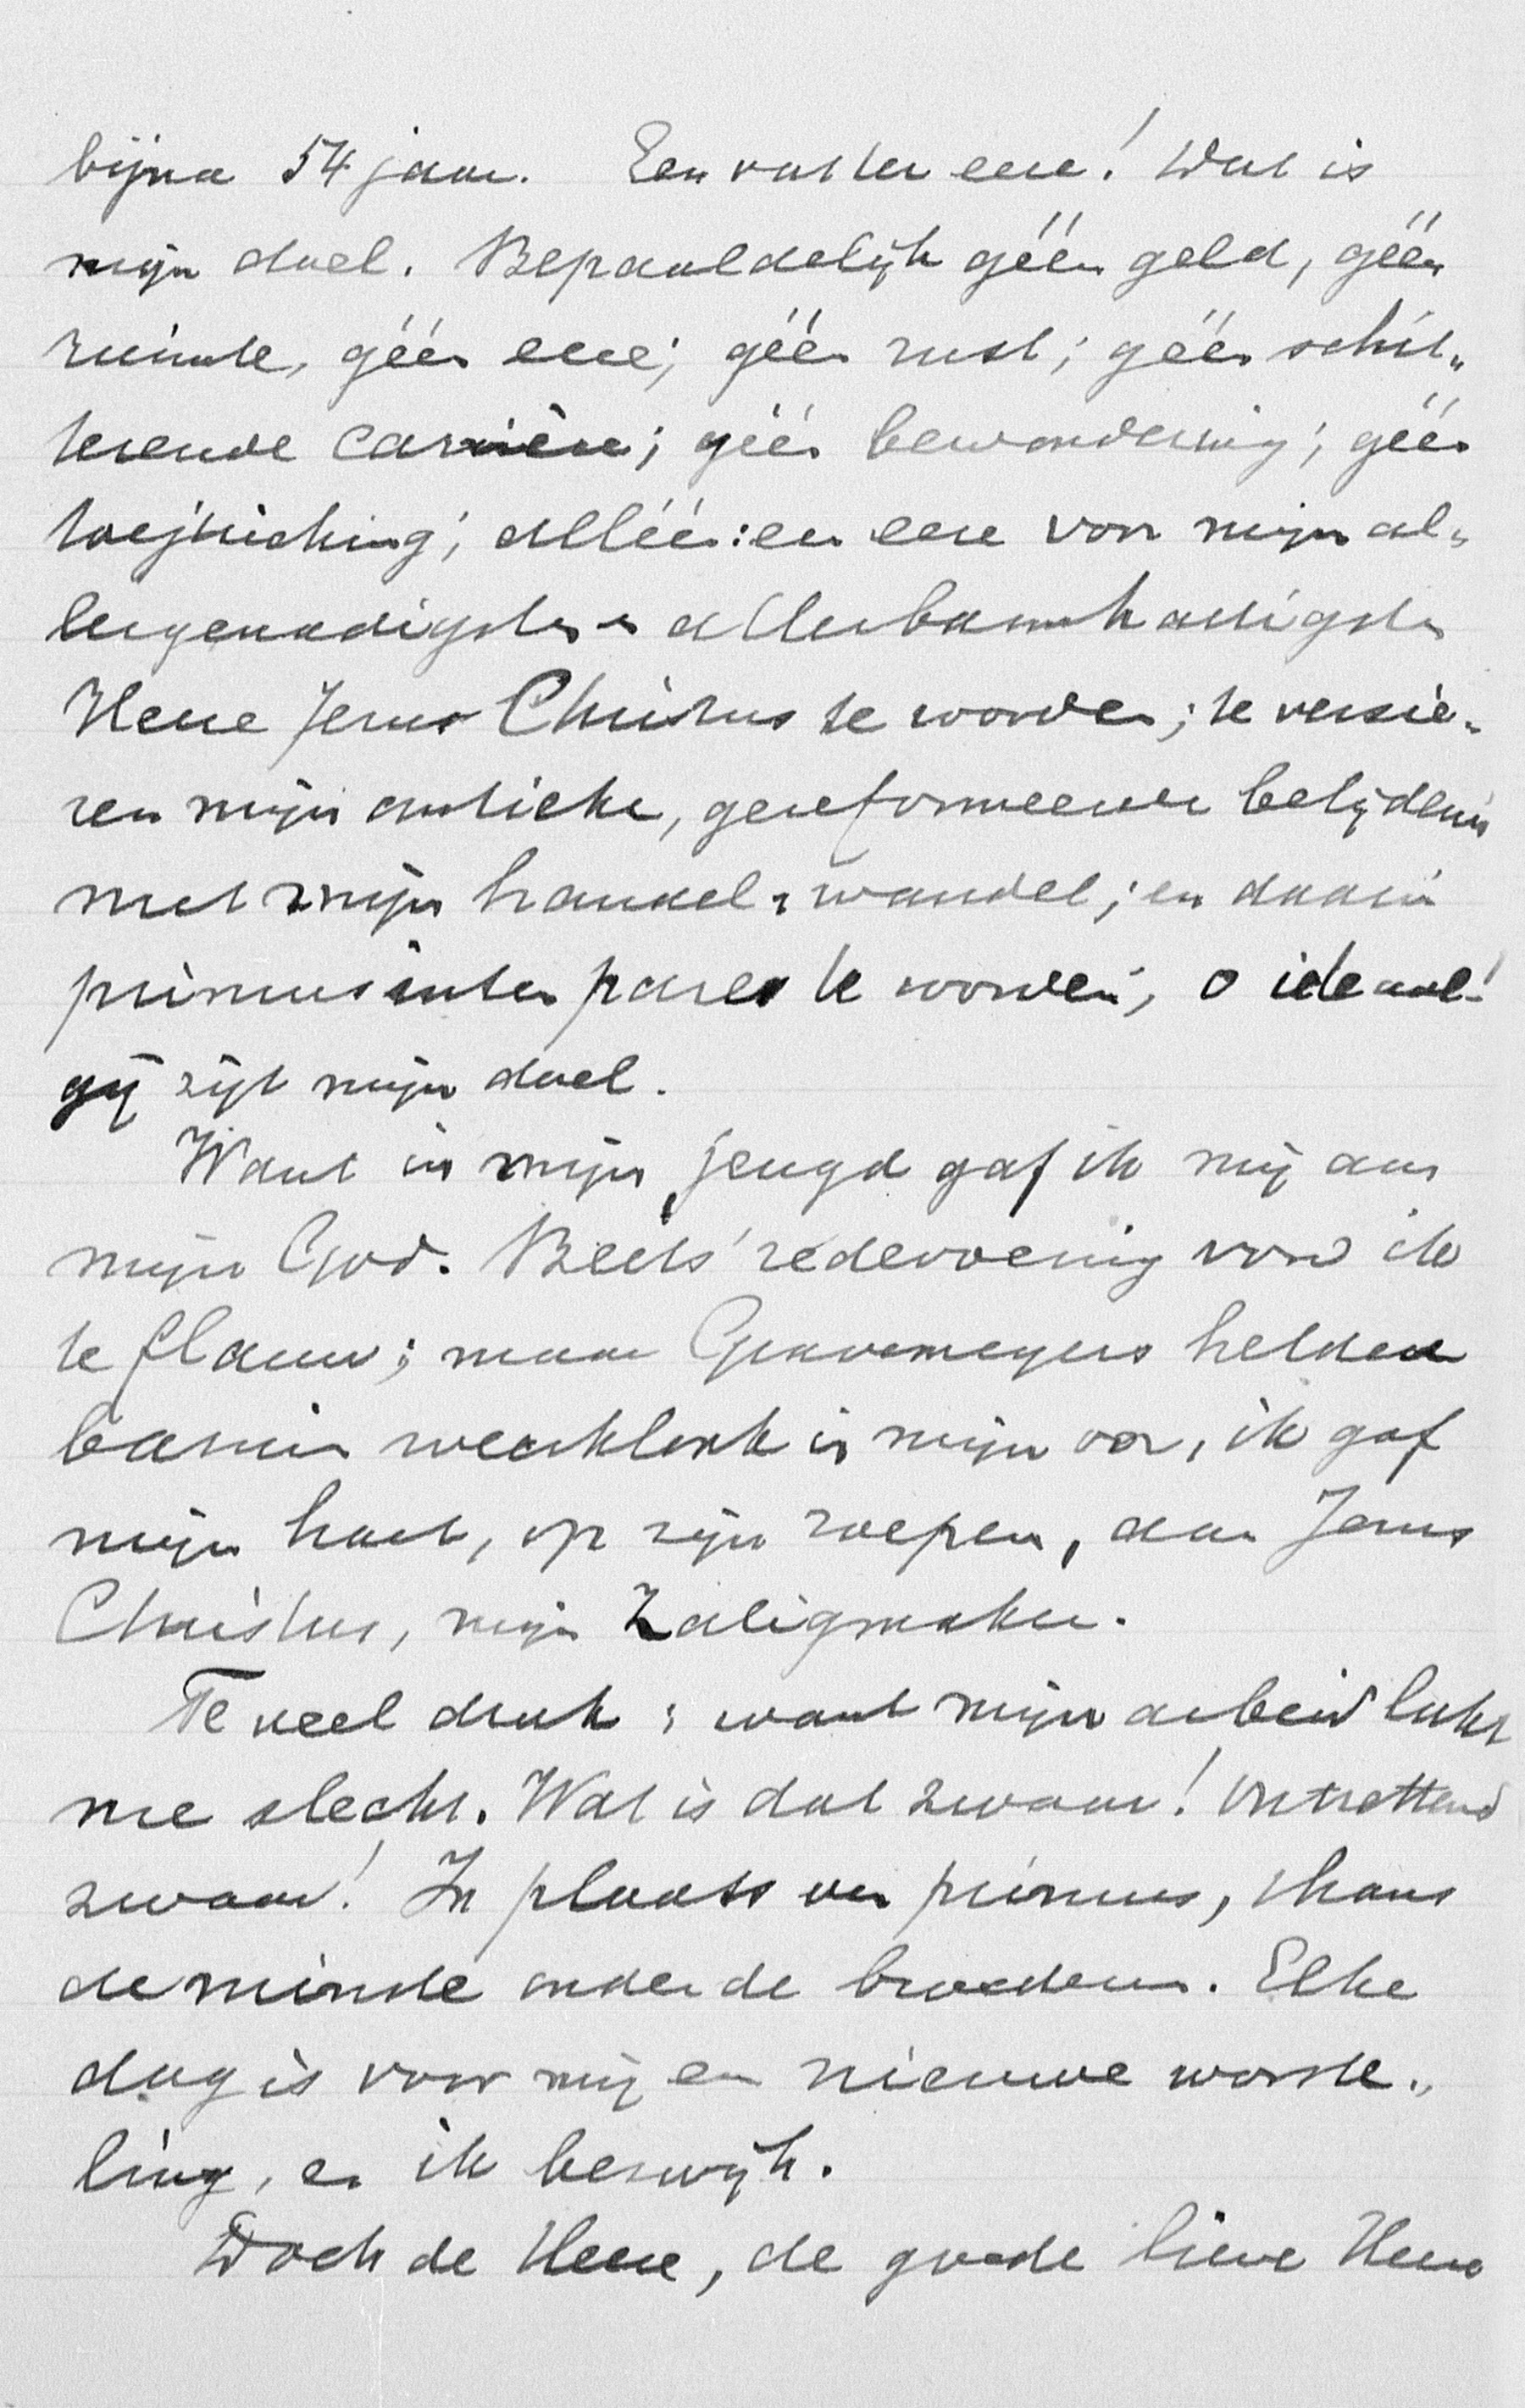 bijna 54 jaar. Een vaster eere! Wat is
mijn doel. Bepaaldelijk géén geld, géén
ruimte, géén eere; géén rust; géén schit„
terende carrière; géén bewondering; géén
toejuiching; alléén: een eere voor mijn al„
lergenadigsten en allerbarmhartigsten
Heere Jezus Christus te worden; te versie„
ren mijn antieke, gereformeerde belijdenis
met mijn handel & wandel; en daarin
primus inter pares te worden; o ideaal!
gij zijt mijn doel.
Want in mijn jeugd gaf ik mij aan
mijn God. Beets' redevoering vond ik
te flauw; maar Gravemeyers heldere
bariton weerklonk in mijn oor, ik gaf
mijn hart, op zijn roepen, aan Jezus
Christus, mijn Zaligmaker.
Te veel druk; want mijn arbeid lukt
me slecht. Wat is dat zwaar! Ontzettend
zwaar! In plaats van primus, thans
de minste onder de broederen. Elke
dag is voor mij een nieuwe worste„
ling, en ik bezwijk.
Doch de Heere, de goede lieve Heere